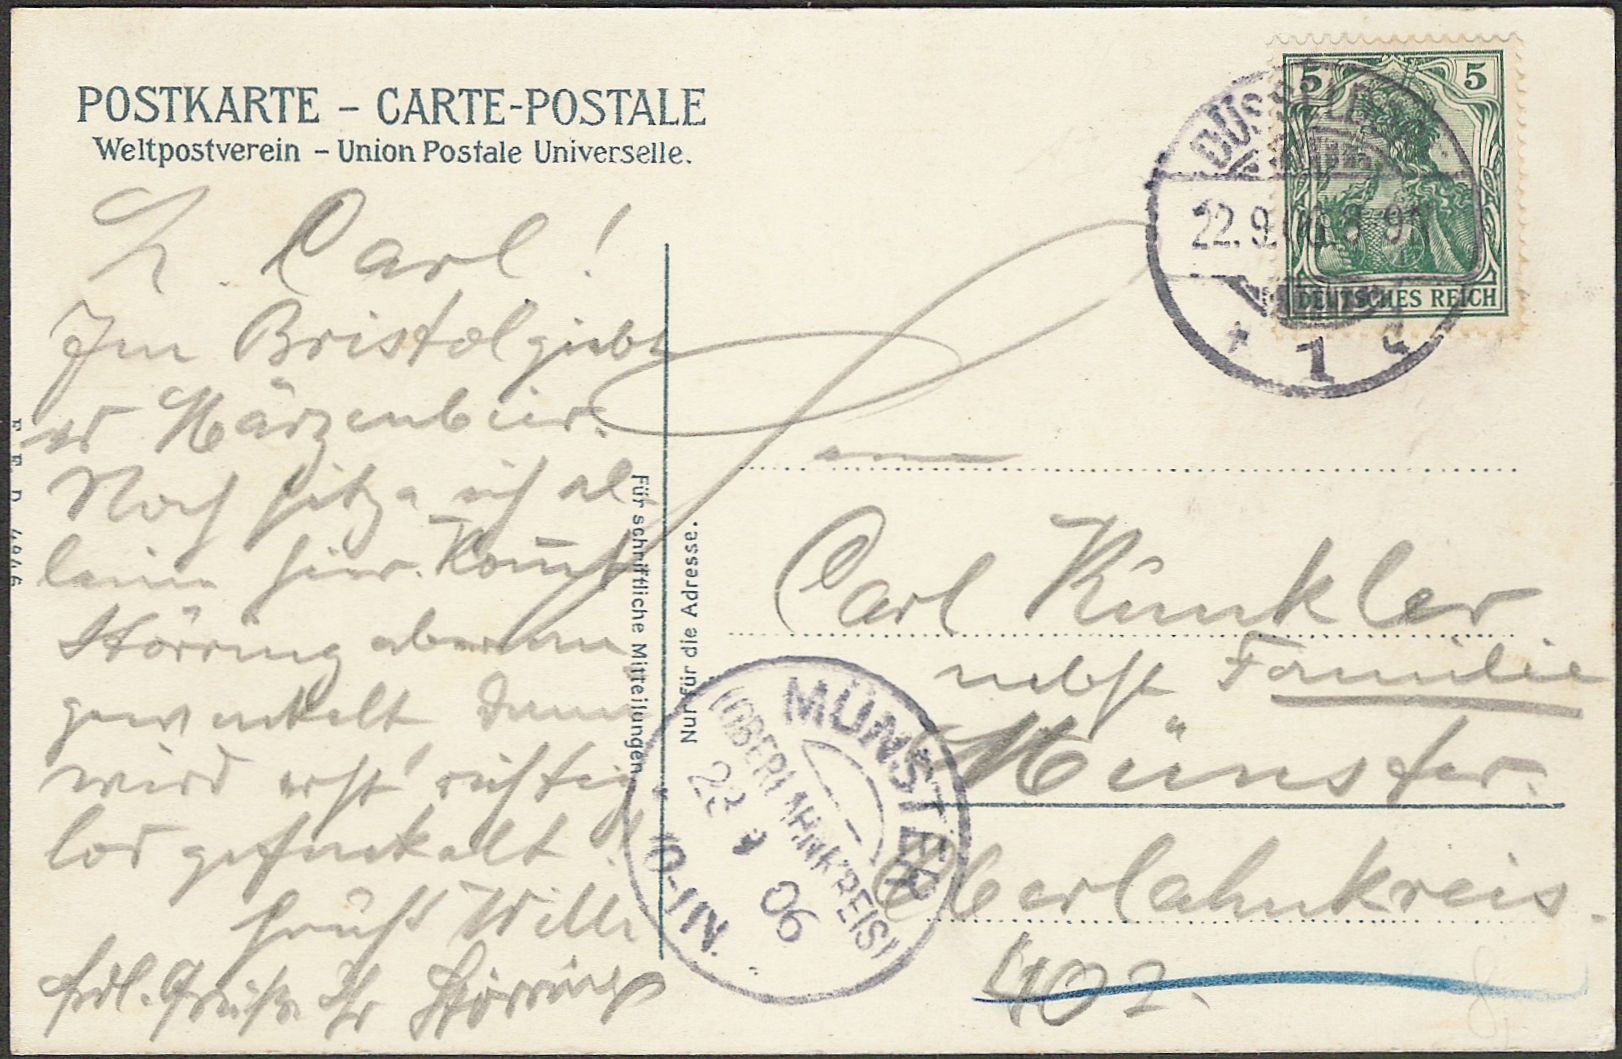 POSTKARTE – CARTE-POSTALE
Weltpostverein – Union Postale Universelle.
L. Carl!
Im Bristol giebt
er Märzenbier.
Noch sitze ich al-
leine hier. Kommt
Störring aber an
gewackelt dann
wird erst richtig
los gefuckelt!
Grüßt Willi
frdl. Grüße Ihr Störring
Für schriftliche Mitteilungen.
Nur für die Adresse.
5 5
DEUTSCHES REICH
DÜSSELDORF
22.9.06. 8-9
* 1
Carl Künkler.
nebst Familie
Münster.
Oberlahnkreis.
402.
MÜNSTER
(OBERLAHNKREIS)
23 9 06
10-11N.